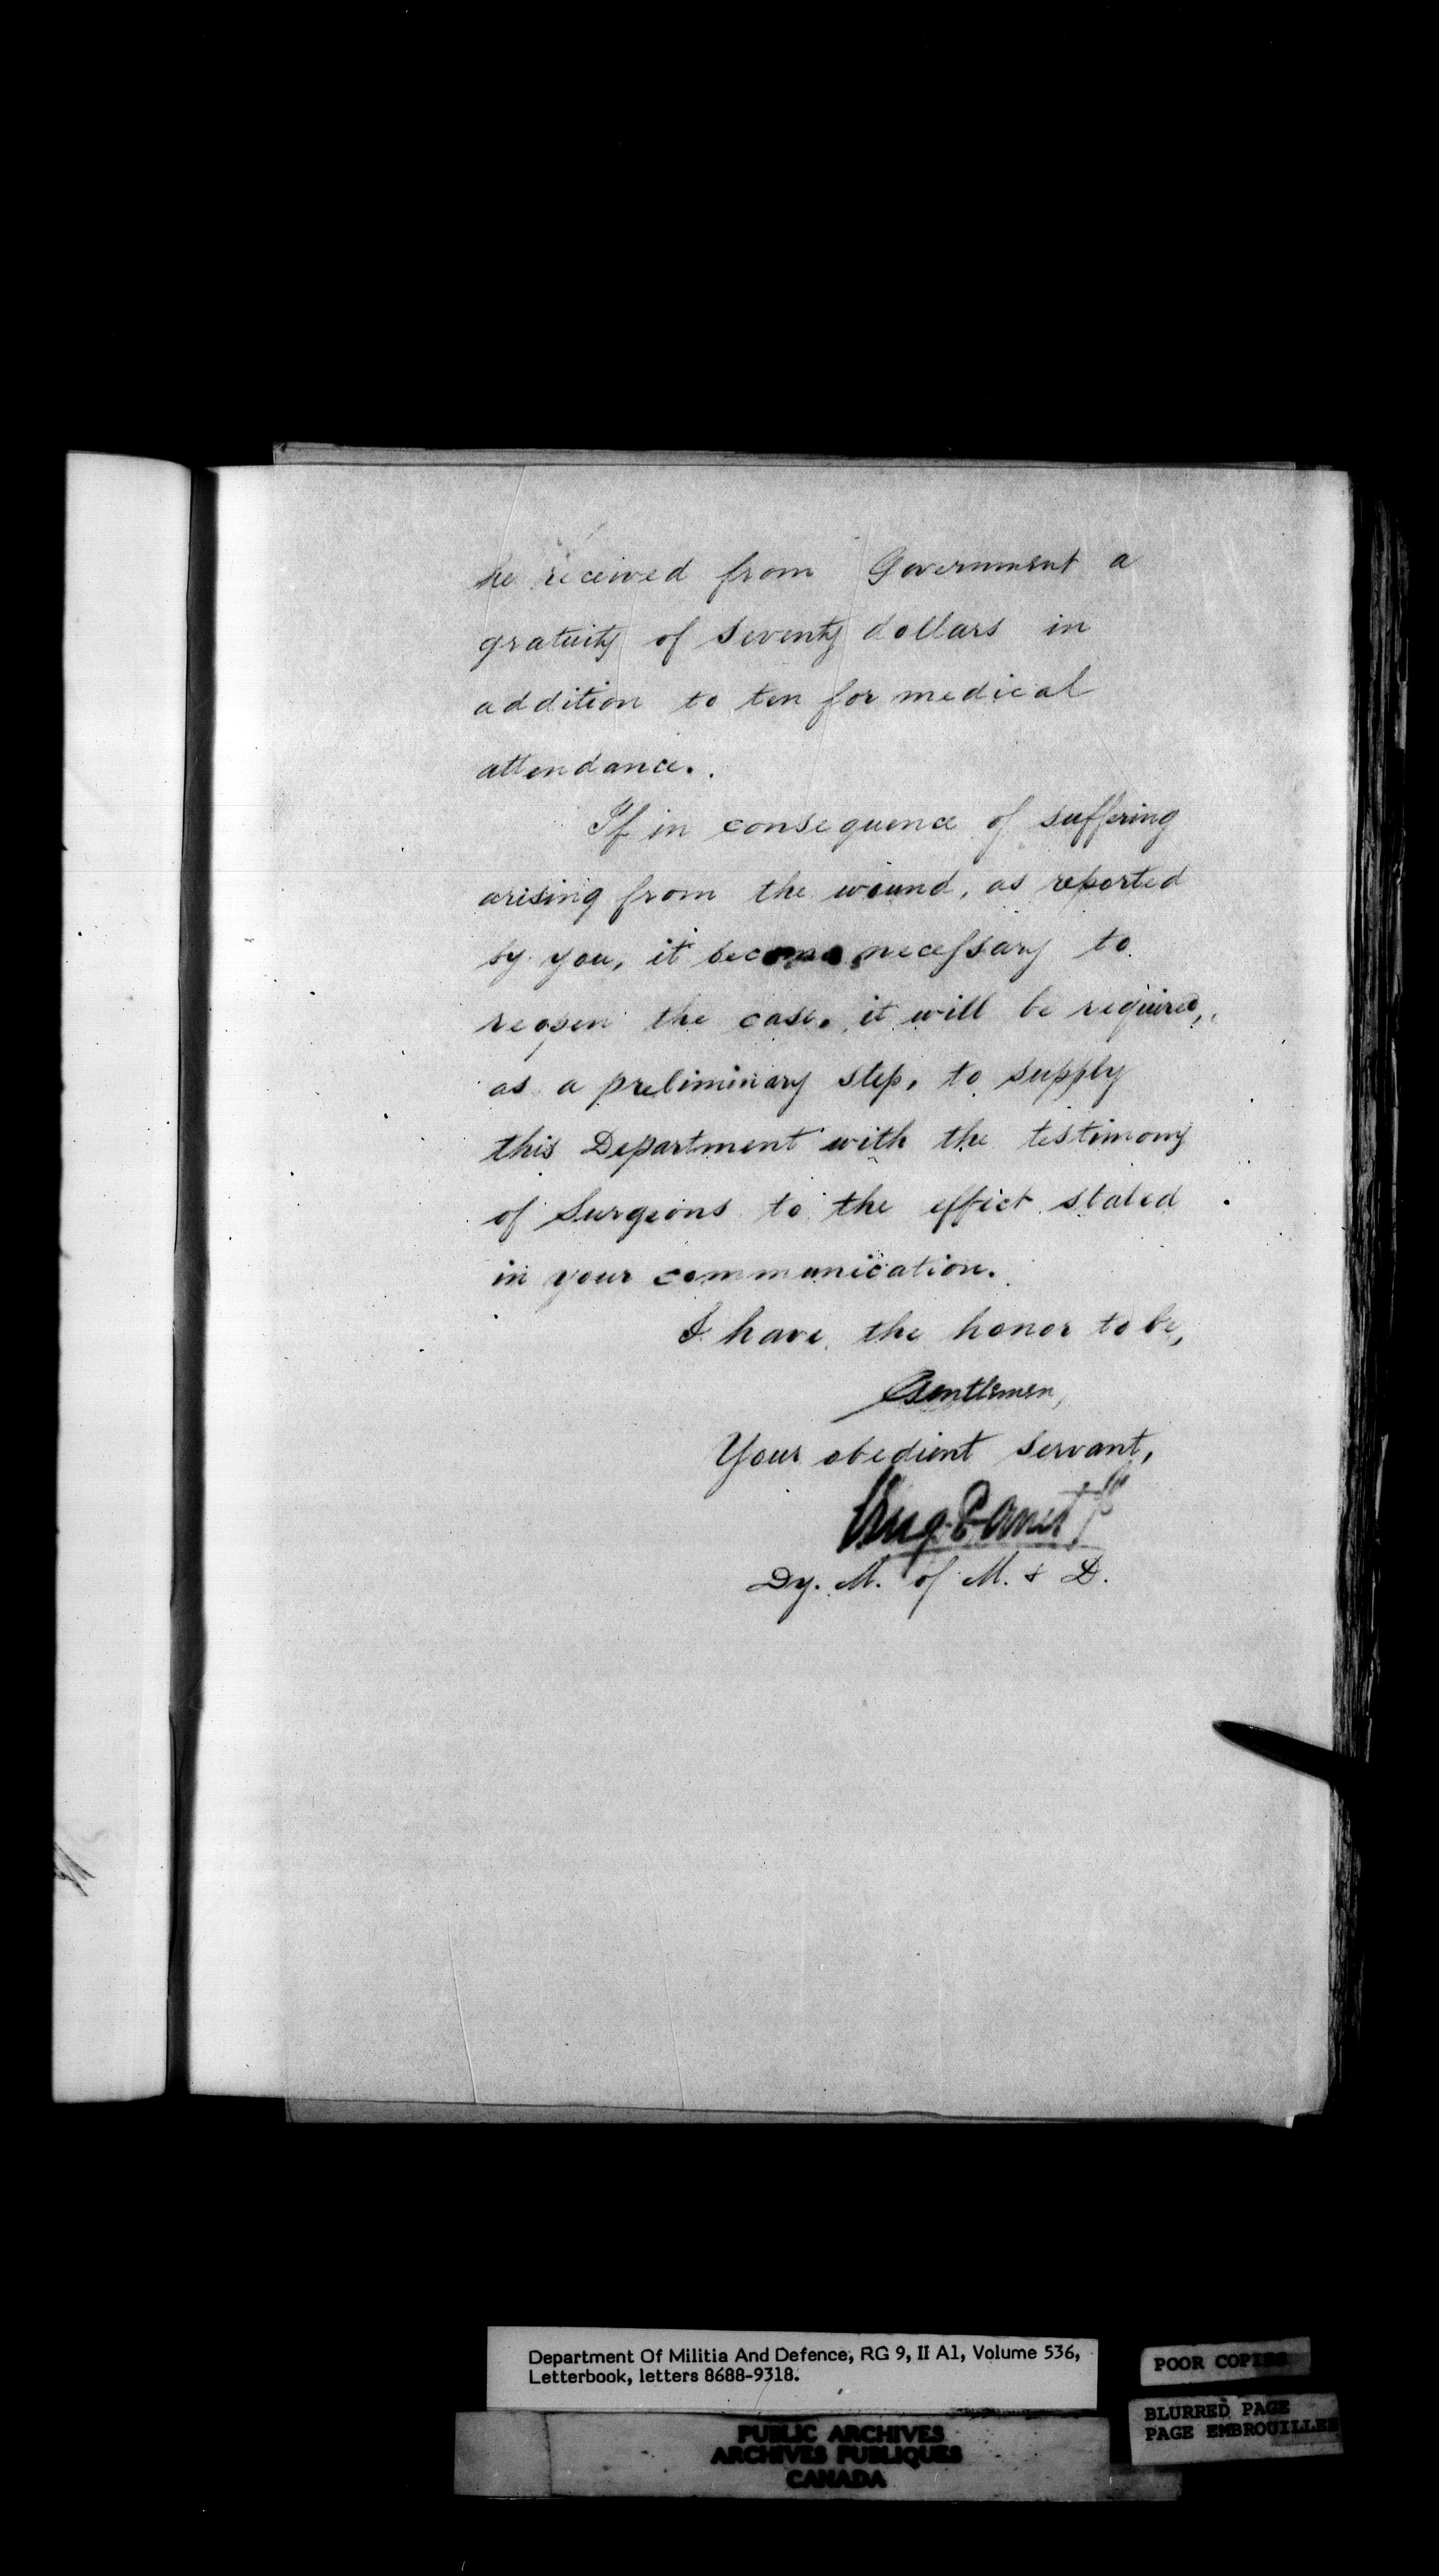 he received from Government a
gratuity of seventy dollars in
addition to ten for medical
attendance.
If in consequence of suffering
arising from the wound, as reported
by you, it become necessary to
reopen the case, it will be required,
as a preliminary step, to supply
this Department with the testimony
of Surgeons to the effect stated
in your communication.
I have the honor to be,
Gentlemen,
Your obedient servant,
Panet
Dy. M. of M. & D.
Department Of Militia And Defence, RG 9, II A1, Volume 536,
Letterbook, letters 8688-9318.
POOR COPIES
BLURRED PAGE
PAGE EMBROUILLEE
PUBLIC ARCHIVES
ARCHIVES PUBLIQUES
CANADA